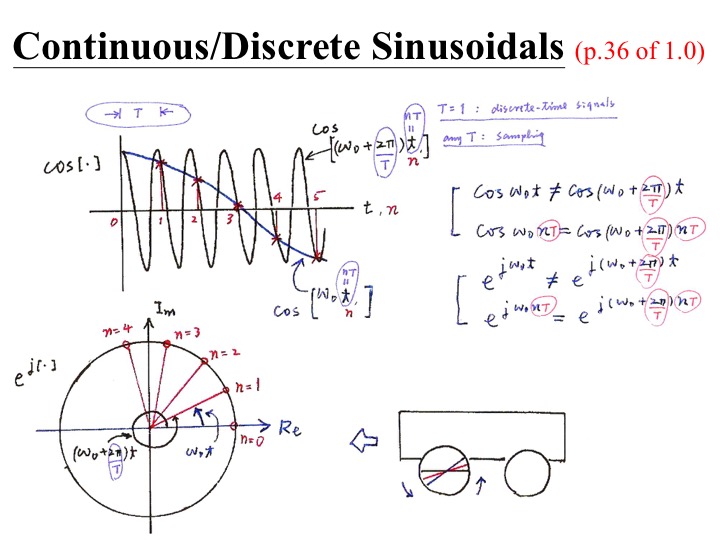 Continuous/Discrete Sinusoidals (p.36 of 1.0)
T
T=1 : discrete-time signals
any T : sampling
cos[·]
cos
[(ω₀+2π/T)t,]
nT
=
n
0 1 2 3 4 5
t, n
cos ω₀t ≠ cos(ω₀+2π/T)t
cos ω₀nT = cos(ω₀+2π/T)nT
e^jω₀t ≠ e^j(ω₀+2π/T)t
e^jω₀nT = e^j(ω₀+2π/T)nT
cos [ω₀t,]
nT
=
n
Im
n=4
n=3
n=2
n=1
n=0
e^j[·]
Re
(ω₀+2π/T)t
ω₀t